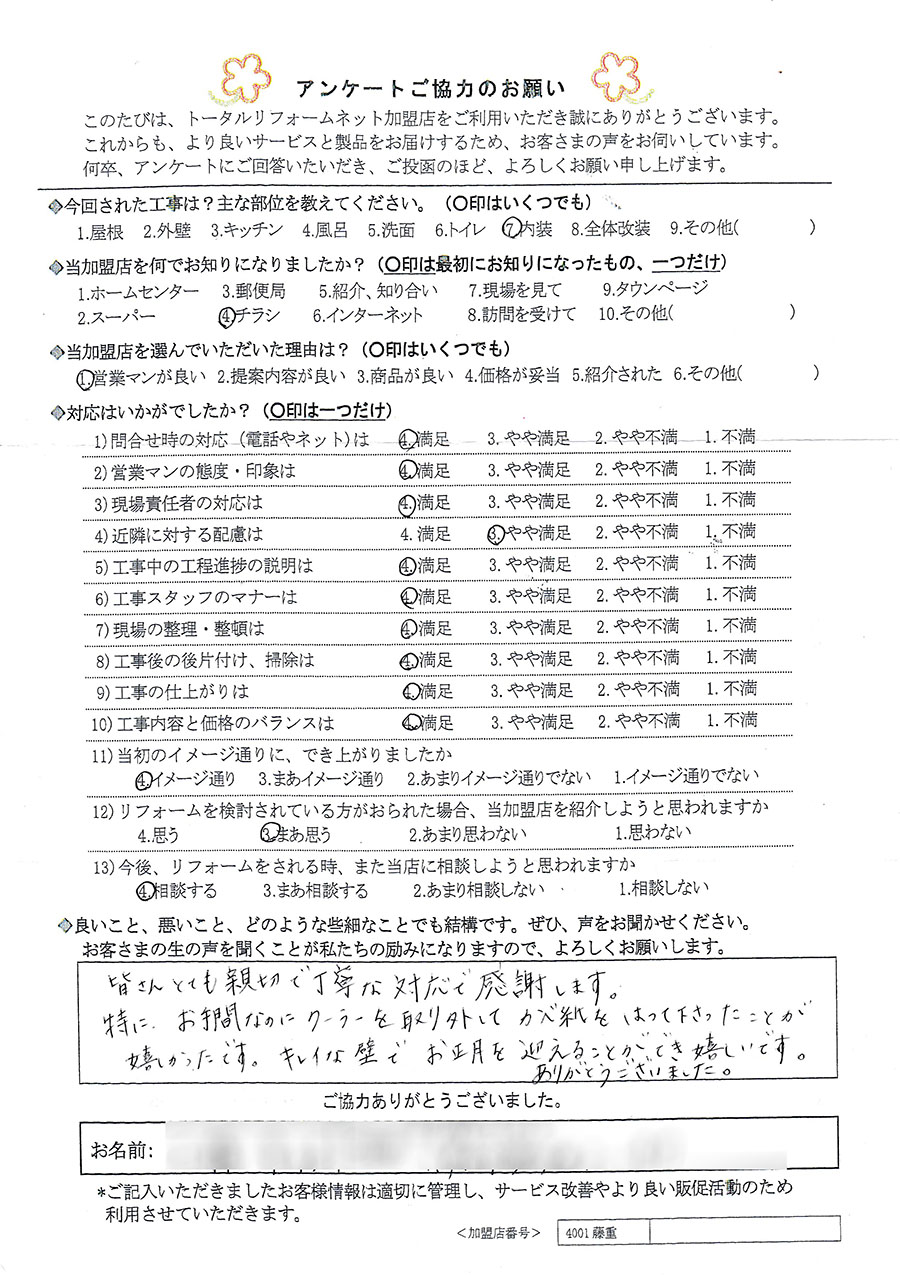 アンケートご協力のお願い
このたびは、トータルリフォームネット加盟店をご利用いただき誠にありがとうございます。
これからも、より良いサービスと製品をお届けするため、お客さまの声をお伺いしています。
何卒、アンケートにご回答いたいだき、ご投函のほど、よろしくお願い申し上げます。
◆今回された工事は?主な部位を教えてください。(○印はいくつでも)
1.屋根 2.外壁 3.キッチン 4.風呂 5.洗面 6.トイレ ⑦内装 8.全体改装 9.その他( )
◆当加盟店を何でお知りになりましたか?(○印は最初にお知りになったもの、一つだけ)
1.ホームセンター 3.郵便局 5.紹介、知り合い 7.現場を見て 9.タウンページ
2.スーパー ④チラシ 6.インターネット 8.訪問を受けて 10.その他( )
◆当加盟店を選んでいただいた理由は?(○印はいくつでも)
①営業マンが良い 2.提案内容が良い 3.商品が良い 4.価格が妥当 5.紹介された 6.その他( )
◆対応はいかがでしたか?(○印は一つだけ)
1)問合せ時の対応(電話やネット)は ④満足 3.やや満足 2.やや不満 1.不満
2)営業マンの態度・印象は ④満足 3.やや満足 2.やや不満 1.不満
3)現場責任者の対応は ④満足 3.やや満足 2.やや不満 1.不満
4)近隣に対する配慮は 4.満足 ③やや満足 2.やや不満 1.不満
5)工事中の工程進捗の説明は ④満足 3.やや満足 2.やや不満 1.不満
6)工事スタッフのマナーは ④満足 3.やや満足 2.やや不満 1.不満
7)現場の整理・整頓は ④満足 3.やや満足 2.やや不満 1.不満
8)工事後の後片付け、掃除は ④満足 3.やや満足 2.やや不満 1.不満
9)工事の仕上がりは ④満足 3.やや満足 2.やや不満 1.不満
10)工事内容と価格のバランスは ④満足 3.やや満足 2.やや不満 1.不満
11)当初のイメージ通りに、でき上がりましたか
④イメージ通り 3.まあイメージ通り 2.あまりイメージ通りでない 1.イメージ通りでない
12)リフォームを検討されている方がおられた場合、当加盟店を紹介しようと思われますか
4.思う ③まあ思う 2.あまり思わない 1.思わない
13)今後、リフォームをされる時、また当店に相談しようと思われますか
④相談する 3.まあ相談する 2.あまり相談しない 1.相談しない
◆良いこと、悪いこと、どのような些細なことでも結構です。ぜひ、声をお聞かせください。
お客さまの生の声を聞くことが私たちの励みになりますので、よろしくお願いします。
皆さんとても親切で丁寧な対応で感謝します。
特に、お手間なのにクーラーを取り外してかべ紙をはって下さったことが
嬉しかったです。キレイな壁でお正月を迎えることができ嬉しいです。
ありがとうございました。
ご協力ありがとうございました。
お名前:
*ご記入いただきましたお客様情報は適切に管理し、サービス改善やより良い販促活動のため
利用させていただきます。
<加盟店番号> 4001 藤重